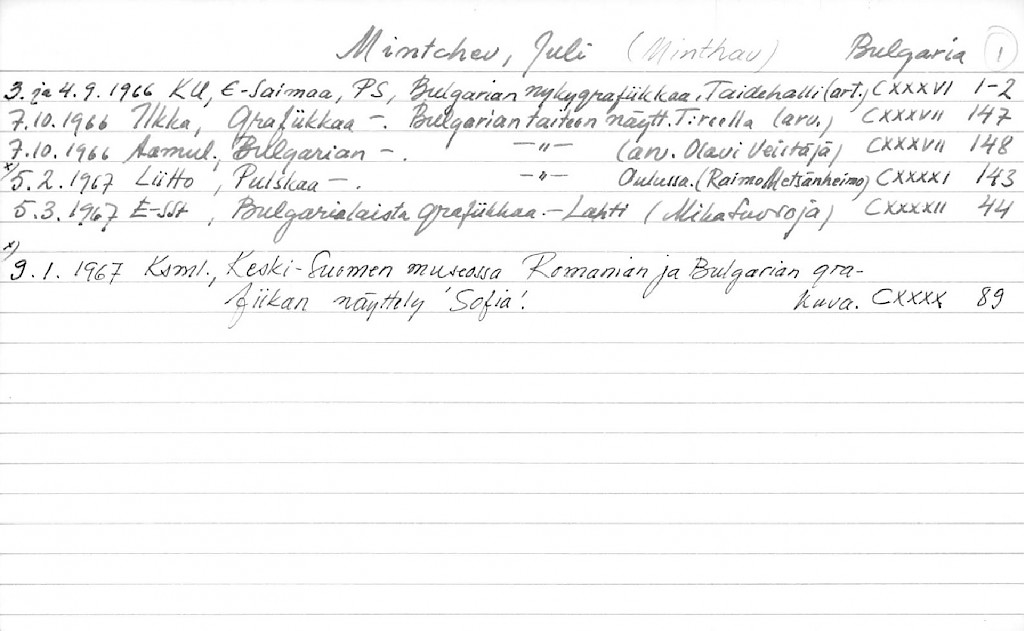 Mintchev, Juli (Minthav) Bulgaria 1
3. ja 4.9.1966 KU, E-Saimaa, PS, Bulgarian nykygrafiikkaa. Taidehalli (art.) CXXXVI 1-2
7.10.1966 Ilkka, Grafiikkaa -. Bulgarian taiteen näytt. T:reella (arv.) CXXXVII 147
7.10.1966 Aamul., Bulgarian -. -"- (arv. Olavi Veistäjä) CXXXVII 148
x) 5.2.1967 Liitto, Pulskaa -. -"- Oulussa. (Raimo Metsänheimo) CXXXXI 143
5.3.1967 E-SSt, Bulgarialaista grafiikkaa. - Lahti (Mika Suvioja) CXXXXII 44
x) 9.1.1967 Ksml., Keski-Suomen museossa Romanian ja Bulgarian gra-
fiikan näyttely 'Sofia'. Kuva. CXXXX 89